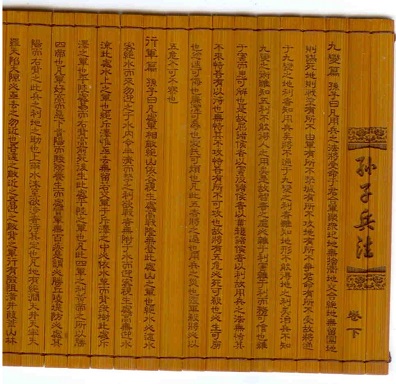 孙子兵法
卷下
九變篇 孫子曰凡用兵之法將受命于君合軍聚衆圮地無舍衢地交合絕地無留圍地
則謀死地則戰塗有所不由軍有所不擊城有所不攻地有所不爭君命有所不受故將通
于九變之地利者知用兵矣將不通于九變之利者雖知地形不能得地之利矣治兵不知
九變之術雖知五利不能得人之用矣是故智者之慮必雜于利害雜于利而務可信也雜
于害而患可解也是故屈諸侯者以害役諸侯者以業趨諸侯者以利故用兵之法無恃其
不來恃吾有以待也無恃其不攻恃吾有所不可攻也故將有五危必死可殺也必生可
虜也忿速可侮也廉潔可辱也愛民可煩也凡此五者將之過也用兵之災也覆軍殺將必以
五危不可不察也
行軍篇 孫子曰凡處軍相敵絕山依谷視生處高戰隆無登此處山之軍也絕水必遠水
客絕水而來勿迎之于水內令半濟而擊之利欲戰者無附于水而迎客視生處高無迎水
流此處水上之軍也絕斥澤惟亟去無留若交軍于斥澤之中必依水草而背衆樹此處斥
澤之軍也平陸處易而右背高前死後生此處平陸之軍也凡此四軍之利黃帝之所以勝
四帝也凡軍好高而惡下貴陽而賤陰養生而處實軍無百疾是謂必勝丘陵隄防必處其
陽而右背之此兵之利地之助也上雨水沫至欲涉者待其定也凡地有絕澗天井天牢天
羅天陷天隙必亟去之勿近也吾遠之敵近之吾迎之敵背之軍行有險阻潢井葭葦山林